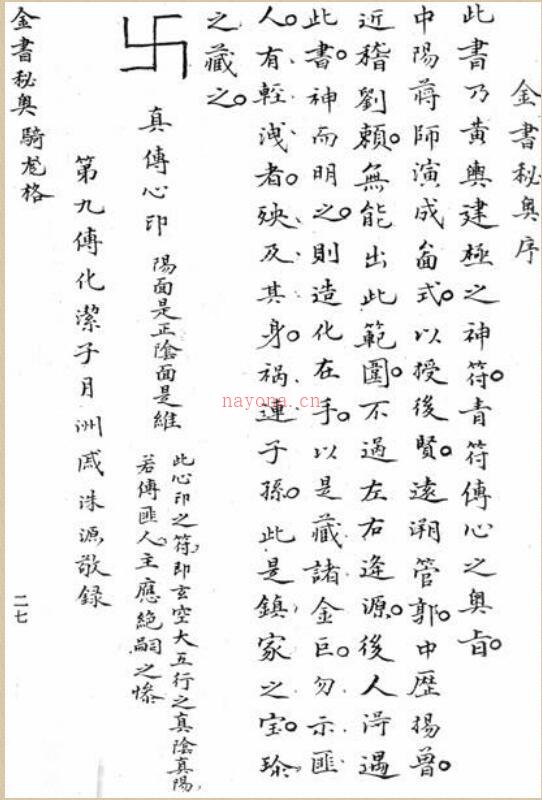 金書秘奥序
此書乃黃輿建極之神符。青符傳心之奥旨。
中陽蔣師演成畣式。以授後賢。遠溯管郭。中歷揚曾。
近稽劉賴。無能出此範圍。不過左右逢源。後人淂遇
此書。神而明之。則造化在手。以是藏諸金匚。勿示匪
人。有輕洩者。殃及其身。祸連子孫。此是鎮家之宝。珎
之藏之。
卐
真傳心印 陽面是正陰面是維
此心印之符，即玄空大五行之真陰真陽，
若傳匪人，主應絶嗣之慘
第九傳化潔子月洲戚洙源敬録
金書秘奥 騎尨格
二七
nayona.cn